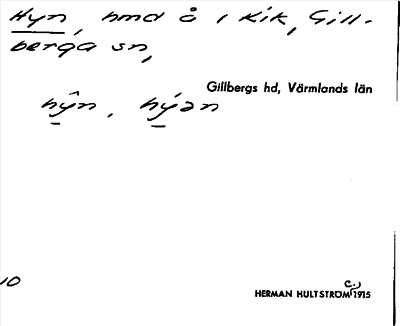 Hyn, hmd å i Kik, Gill-
berga sn,
Gillbergs hd, Värmlands län
hŷn, hýən
10
HERMAN HULTSTRÖM c:a 1915